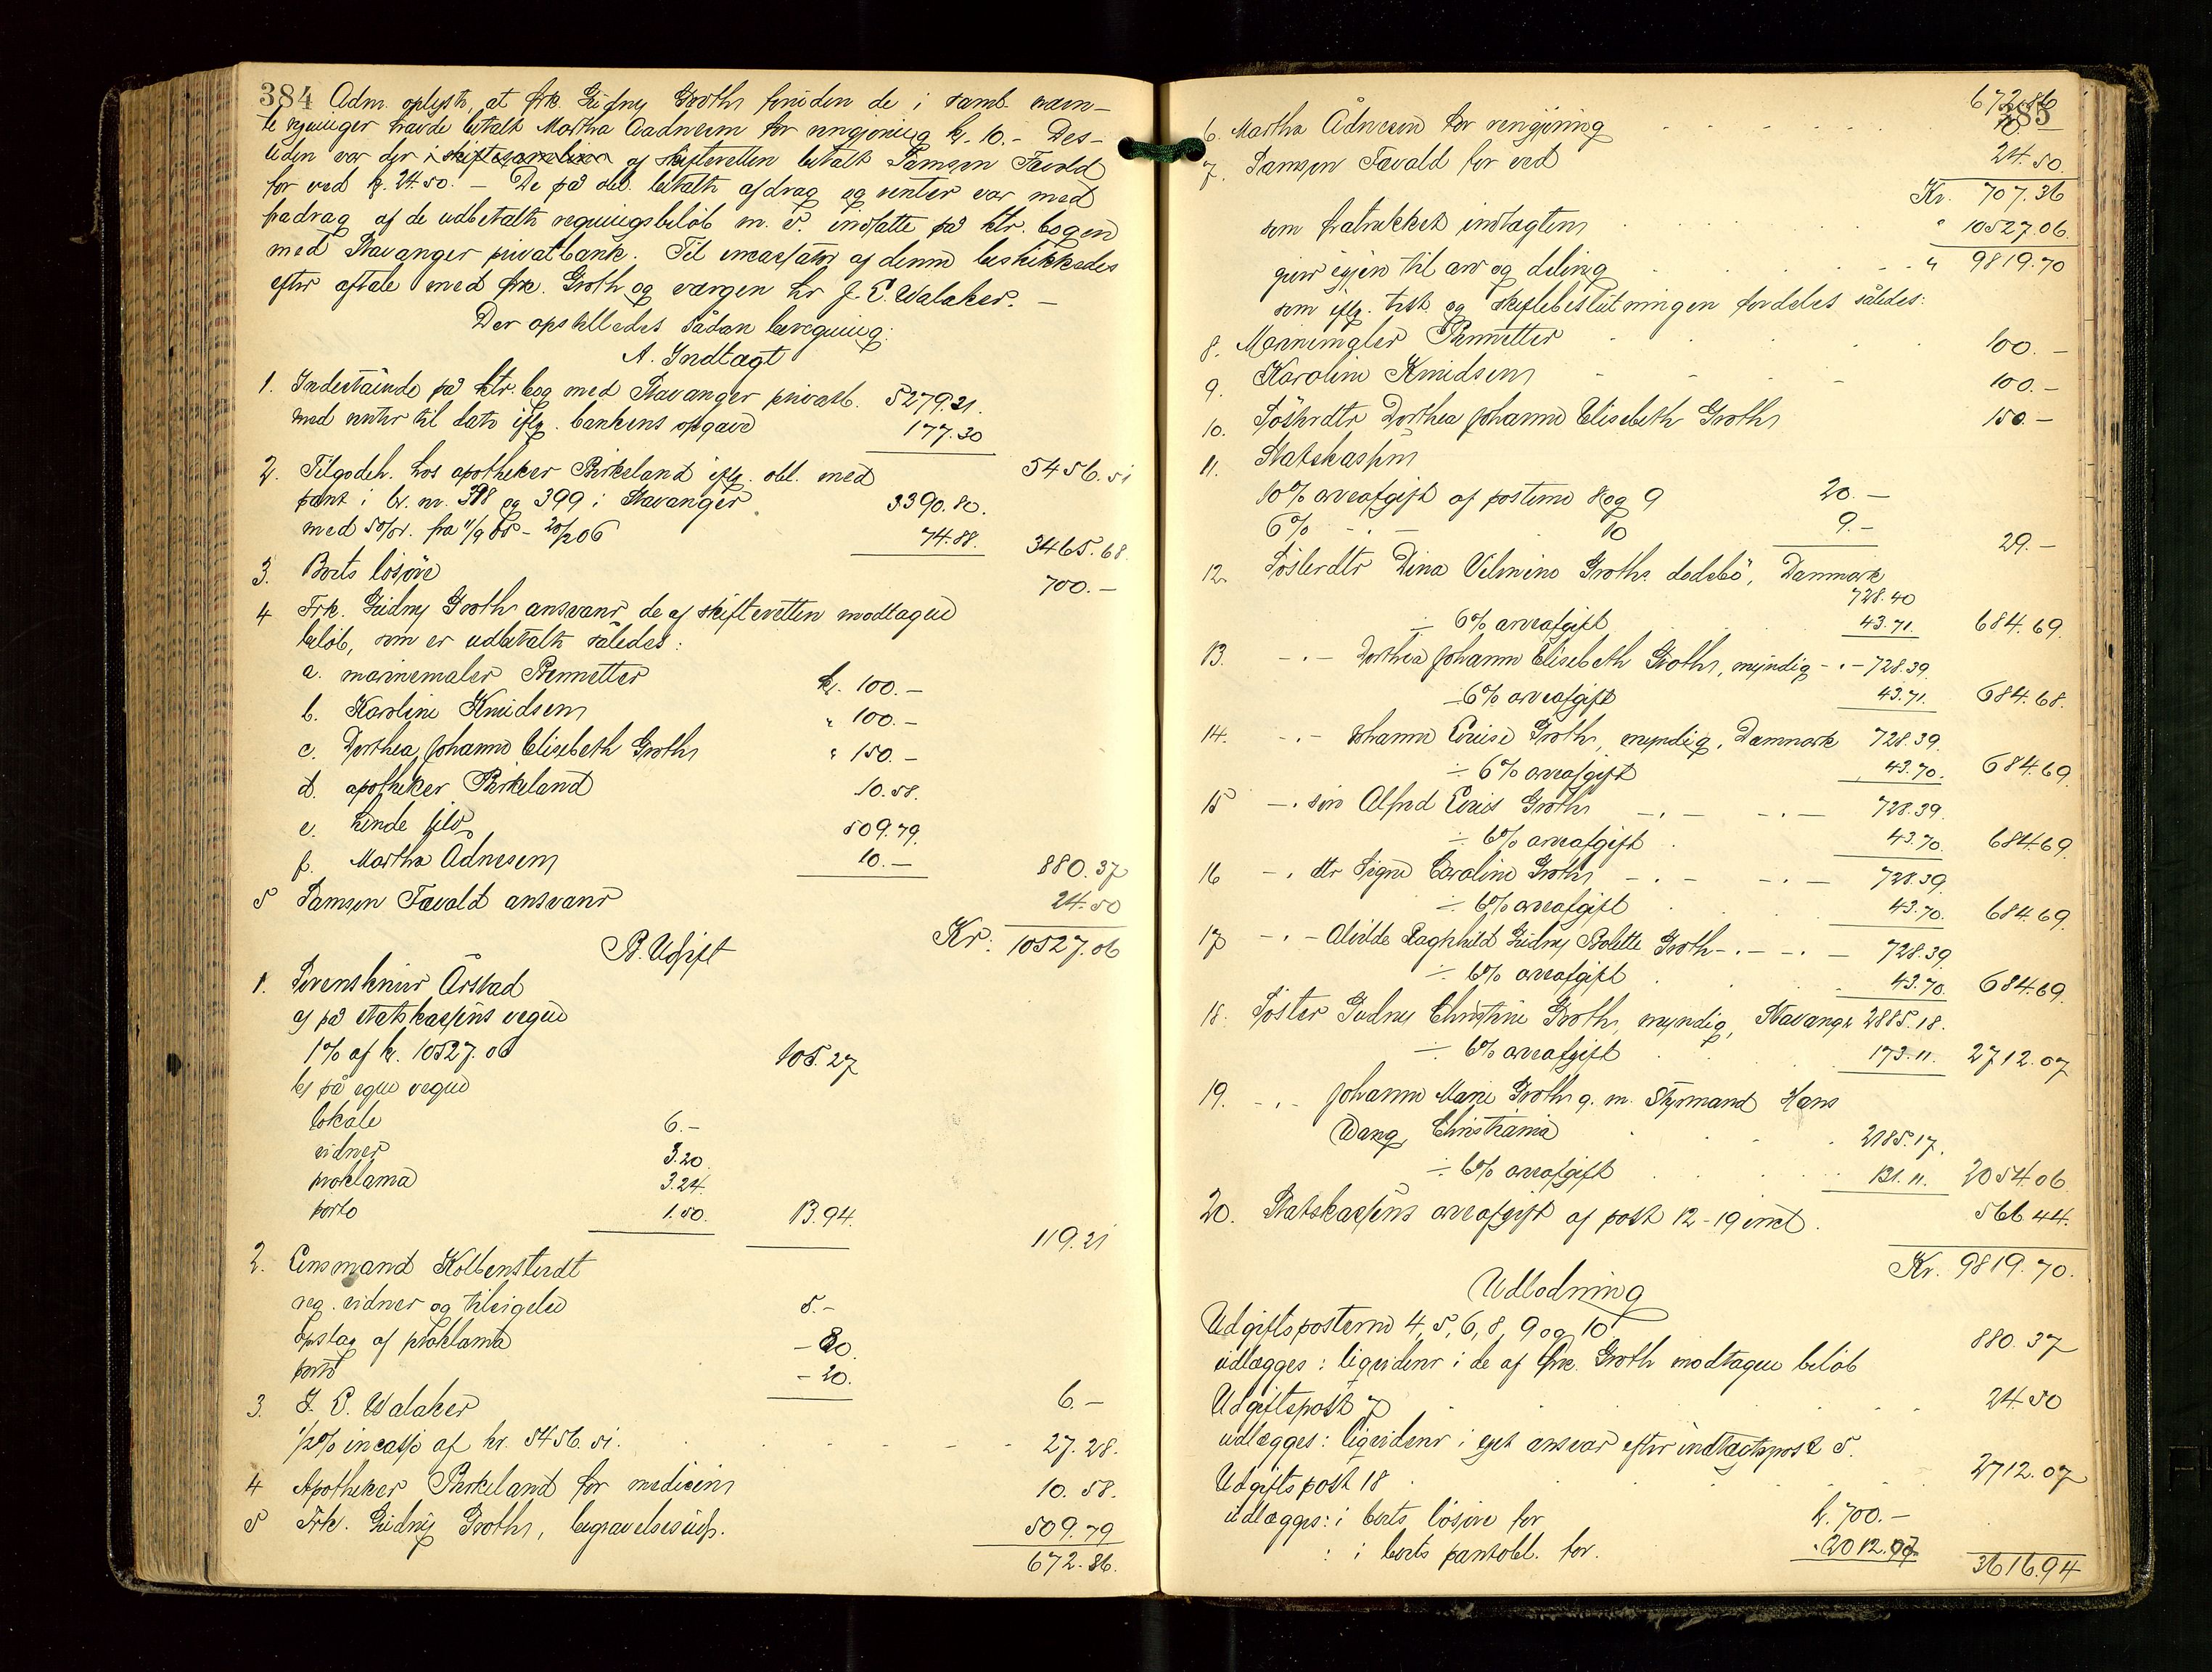 384 Adm. oplyste, at frk. Gudny Groth foruden de i saml. nævn-
te regninger havde betalt Martha Aadnesen for rengjøring kr. 10.- Des-
uden var der af skifteretten betalt Samson Tævold
for ved kr. 24.50. - De på obl. betalte afdrag og renter var med
fradrag af de udbetalte regningsbeløb m. v. indsatte på ktr. bogen
med Stavanger privatbank. Til incassator af denne beskikkedes
efter aftale med frk. Groth og værgen hr J. E. Walaker. -
Der opstilledes sådan beregning:
A. Indtægt
1. Indestående på ktr. bog med Stavanger privatb. 5279.21.
med renter til dato iflg. bankens opgave 177.30
5456.51
2. Tilgodeh. hos apotheker Birkeland iflg. obl. med
pant i br. nr. 398 og 399 i Stavanger 3390.80.
med 5% r. fra 11/9 05 - 20/2 06 74.88. 3465.68.
3. Boets løsøre 700.-
4 Frk. Gudny Groth ansvarer de af skifteretten modtagne
beløb, som er udbetalt således:
a. marinemaler Bennetter kr. 100.-
b. Karoline Knudsen " 100.-
c. Dorthea Johanne Elisebeth Groth " 150.-
d. apotheker Birkeland 10.58.
e. hende selv 509.79.
f. Martha Adnesen 10.- 880.37
5 Samson Tævold ansvarer 24.50
Kr. 10527.06
B. Udgift
1. Sorenskriver Årstad
a) på statskassens vegne
1% af kr. 10527.06 105.27
b) på egne vegne
lokale 6.-
vidner 3.20.
proklama 3.24.
porto 1.50. 13.94.
119.21
2. Lensmand Kolbenstvedt
reg. vidner og tilsigelse 5.-
opslag af proklama - 80.
porto - 20.
6.-
3. J. E. Walaker
1/2% incasso af kr. 5456.51. 27.28.
4 Apotheker Birkeland for medicin 10.58.
5 Frk. Gudny Groth, begravelsesudg. 509.79
672.86.
385
672.86
6. Martha Ådnesen for rengjøring 10
7. Samson Tævald for ved 24.50.
Kr. 707.36
som fratrukket indtægten " 10527.06.
giver igjen til arv og deling " 9819.70
som iflg. test. og skiftebeslutningen fordeles således:
8. Marinemaler Bennetter 100.-
9. Karoline Knudsen 100.-
10. Søsterdtr Dorthea Johanne Elisebeth Groth 150.-
11. Statskassen
10% arveafgift af posterne 8 og 9 20.-
6% - . - 10 9.-
29.-
12. Søsterdtr Dina Velmine Groths dødsbo, Danmark
728.40
÷ 6% arveafgift 43.71. 684.69.
13. - . - Dorthea Johanne Elisebeth Groth, myndig - . - 728.39.
÷ 6% arveafgift 43.71. 684.68.
14. - . - Johanne Louise Groth, myndig, Danmark 728.39.
÷ 6% arveafgift 43.70. 684.69
15 - . søn Alfred Louis Groth - . - - . - 728.39.
÷ 6% arveafgift 43.70. 684.69.
16 - . dtr Signe Caroline Groth - . - - . - 728.39.
÷ 6% arveafgift 43.70. 684.69.
17 - . - Alvilde Ragnhild Gudny Bolette Groth - . - - . - 728.39
÷ 6% arveafgift 43.70. 684.69.
18. Søster Gudny Christine Groth, myndig, Stavanger 2885.18.
÷ 6% arveafgift 173.11. 2712.07
19. - . - Johanne Marie Groth g. m. Styrmand Hans
Wang, Christiania 2185.17.
÷ 6% arveafgift 131.11. 2054.06
20. Statskassens arveafgift af post 12-19 incl. 566.44.
Kr. 9819.70.
Udlodning
Udgiftsposterne 4, 5, 6, 8, 9 og 10 880.37
udlægges: liqviderer i de af frk. Groth modtagne beløb
Udgiftspost 7 24.50
udlægges: liqviderer i eget ansvar efter indtægtspost 5.
Udgiftspost 18 2712.07
udlægges: i boets løsøre for kr. 700.-
: i boets pantobl. for " 2012.07
3616.94